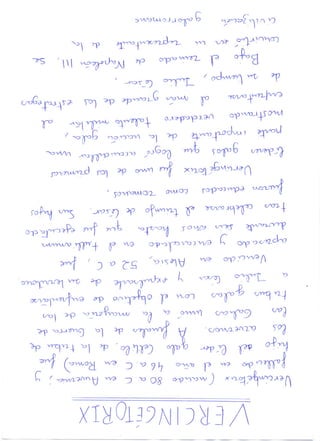 VERCINGÉTORIX
Vercingetorix (nacido 80 a C en Auvernia ; y
fallecido en el año 46 a C en Roma) fue
hijo del líder galo Celtilo, de la tribu de
los arvernos. A finales de la Guerra de
las Galias unió a la mayoría de las
tribus galas con el objetivo de
a Julio César y expulsarle de su territorio
Vencido en Alesia, 52 a C, fue
apresado y encarcelado en el tullianum
durante seis años hasta que fue ejecutado
tras celebrarse el triunfo de César. Sus hijos
fueron educados como romanos.
Vercingetorix fue uno de los primeros
líderes galos que logró acaudillar una
parte importante de la nación gala,
mostrando verdadero talento militar al
enfrentarse al más grande de los estrategas
de su tiempo, Julio César.
Bajo el reinado de Napoleón III, se
convirtió en un representante de la
civilización galorromana